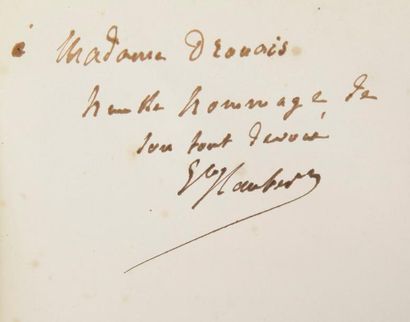 à Madame Dronais
humble hommage de
son tout dévoué
Gve Flaubert